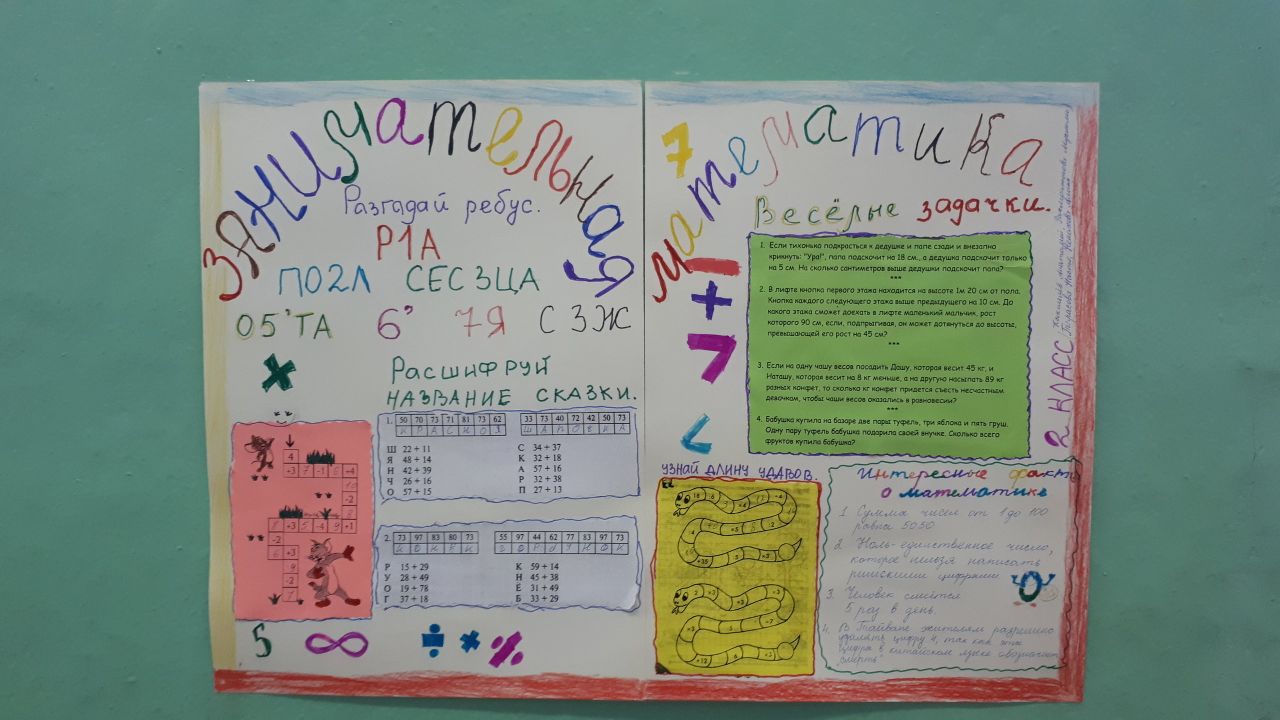 ЗАНИМАТЕЛЬНАЯ
Разгадай ребус.
Р1А
ПО2Л СЕС3ЦА
О5'ТА 6' 7Я С3Ж
Расшифруй
НАЗВАНИЕ СКАЗКИ.
1. 50 70 73 71 81 73 62
33 73 40 72 42 50 73
К Р А С Н О З
Ш А П О В К А
Ш 22 + 11
Я 48 + 14
Н 42 + 39
Ч 26 + 16
О 57 + 15
С 34 + 37
К 32 + 18
А 57 + 16
Р 32 + 38
П 27 + 13
2. 73 97 83 80 73
55 97 44 62 77 83 97 73
Р 15 + 29
У 28 + 49
О 19 + 78
Г 37 + 18
К 59 + 14
Н 45 + 38
Ё 31 + 49
Б 33 + 29
5 ∞ ÷ * %
математика
7
Весёлые задачки.
1. Если тихонько подкрасться к дедушке и папе сзади и внезапно
крикнуть: "Ура!", папа подскочит на 18 см., а дедушка подскочит только
на 5 см. На сколько сантиметров выше дедушки подскочит папа?
***
2. В лифте кнопка первого этажа находится на высоте 1м 20 см от пола.
Кнопка каждого следующего этажа выше предыдущего на 10 см. До
какого этажа сможет доехать в лифте маленький мальчик, рост
которого 90 см, если, подпрыгивая, он может дотянуться до высоты,
превышающей его рост на 45 см?
***
3. Если на одну чашу весов посадить Дашу, которая весит 45 кг, и
Наташу, которая весит на 8 кг меньше, а на другую насыпать 89 кг
разных конфет, то сколько кг конфет придется съесть несчастным
девочкам, чтобы чаши весов оказались в равновесии?
***
4. Бабушка купила на базаре две пары туфель, три яблока и пять груш.
Одну пару туфель бабушка подарила своей внучке. Сколько всего
фруктов купила бабушка?
- + > <
2 КЛАСС
УЗНАЙ ДЛИНУ УДАВОВ.
Интересные факты
о математике
1. Сумма чисел от 1 до 100
равна 5050
2. Ноль - единственное число,
которое нельзя написать
римскими цифрами
3. Человек смеётся
5 раз в день.
4. В Тайване жителям разрешено
удалять цифру 4, так как эта
цифра в китайском языке обозначает
"смерть"